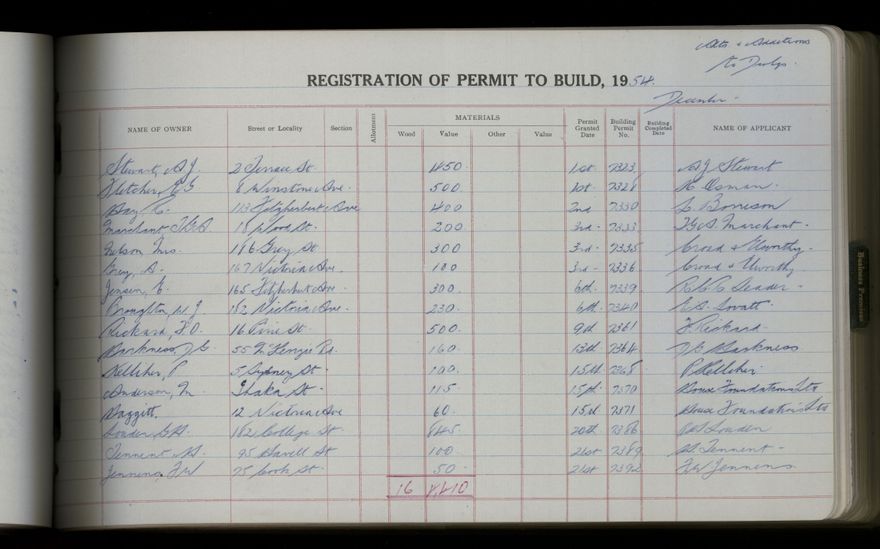 Alts & Additions
to Dwlgs.
REGISTRATION OF PERMIT TO BUILD, 1954.
December
NAME OF OWNER Street or Locality Section Allotment MATERIALS Wood Value Other Value Permit Granted Date Building Permit No. Building Completed Date NAME OF APPLICANT
Stewart, A J. 2 Terrace St. 450 1st 7323 A J Stewart
Fletcher, 8 Winstone Ave. 500 1st 7328 Osman.
Day, C. 113 Fitzherbert Ave 400 2nd 7330
Marchant, T.G.S. 18 Wood St. 200 3rd 7333 T.G.S. Marchant.
Nelson, Mrs. 186 Grey St. 300 3rd 7335 Croad &
Grey, A. 167 Victoria Ave. 100 3rd 7336 Croad &
Jensen, E. 165 Fitzherbert Ave. 300 6th 7339 Leader
Broughton, W. J. 182 Victoria Ave. 230 6th 7340 Lovatt
Rickard, F.O. 16 Pine St. 500 9th 7361 Rickard
Harkness, J. G. 55 McKenzie Rd. 160 13th 7364 J G Harkness
Kelliher, P 5 Sydney St. 100 15th 7368 P Kelliher
Anderson, M. Ihaka St. 115 15th 7370 Doux Foundations Ltd
Daggitt, 12 Victoria Ave 60 15th 7371 Doux Foundations Ltd
Louden 182 College St. 845 20th 7386 Louden
Tennent 95 Savell St 100 21st 7389 Tennent
Jennens, F W 75 Cook St. 50 21st 7392 F W Jennens
16
Business Premises